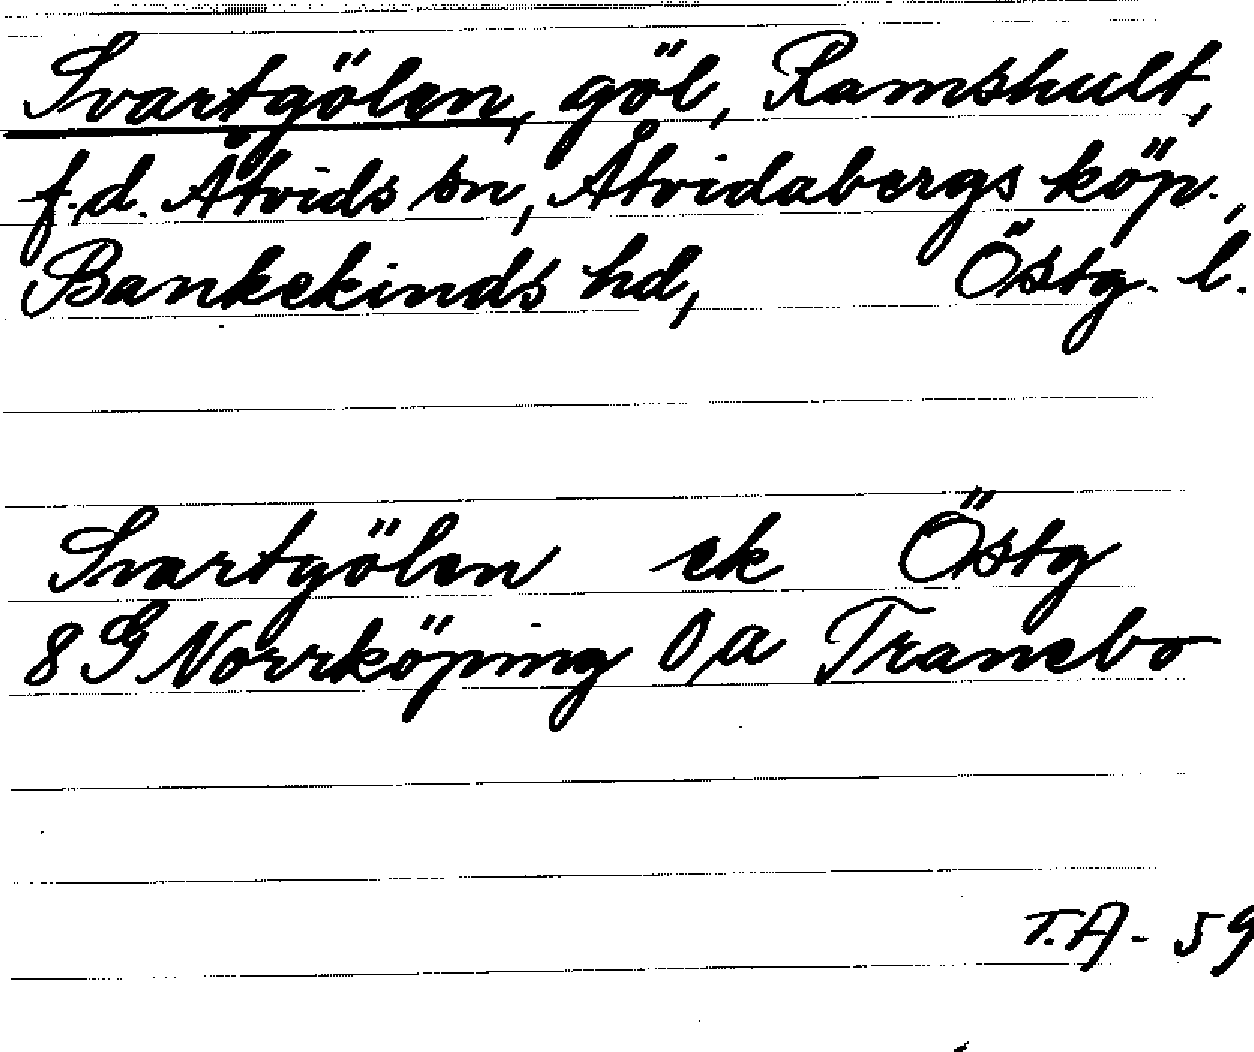 Svartgölen, göl, Ramshult,
f.d. Åtvids sn, Åtvidabergs köp.,
Bankekinds hd, Östg. l.
Svartgölen ek Östg
8G Norrköping 0/a Tranebo
T.A - 59